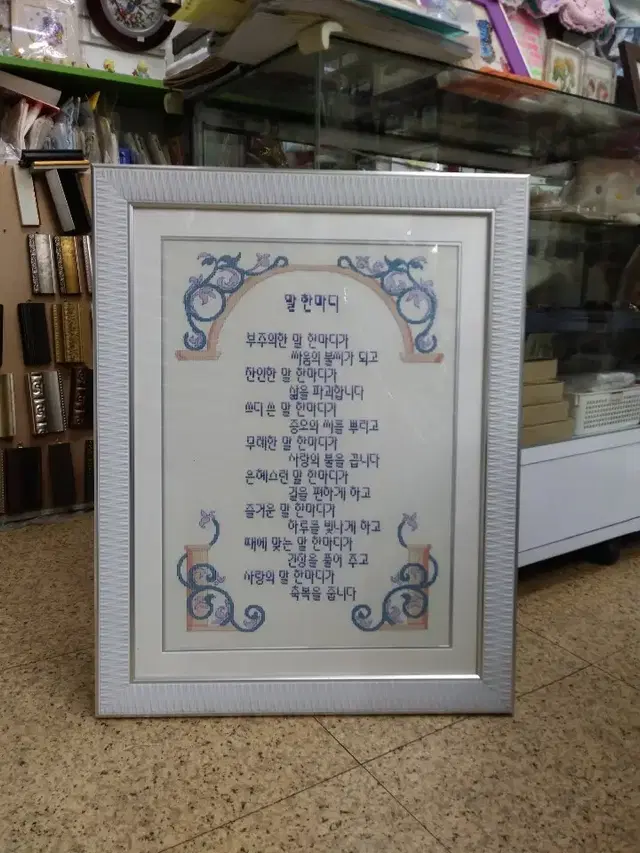 말 한마디
부주의한 말 한마디가
싸움의 불씨가 되고
잔인한 말 한마디가
삶을 파괴합니다
쓰디 쓴 말 한마디가
증오의 씨를 뿌리고
무례한 말 한마디가
사랑의 불을 끕니다
은혜스런 말 한마디가
길을 편하게 하고
즐거운 말 한마디가
하루를 빛나게 하고
때에 맞는 말 한마디가
긴장을 풀어 주고
사랑의 말 한마디가
축복을 줍니다